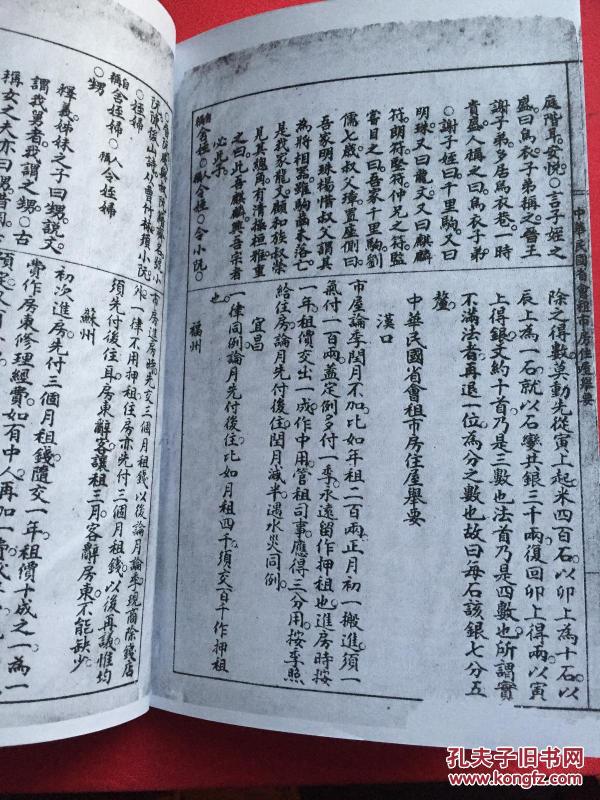 中華民國省會租市房住屋舉要
庭階耳安悅○言子姪之
盛曰烏衣子弟稱之晉王
謝子弟多居烏衣巷一時
貴盛人稱之曰烏衣子弟
○謝子姪曰千里駒又曰
明珠又曰龍文又曰麒麟
符朗符堅符仲兄之符堅
嘗目之曰吾家千里駒劉
儒七歲叔父瑋置座側曰
吾家明珠楊惜叔父謂其
為將相器雖駒齒未落亡
是我家龍文顧和族叔榮
見其總角有清操桓雅重
之曰此吾麒麟興吾宗者
必此子
自稱舍姪稱人令姪○令小阮○
除之得數莫動先從寅上起米四百石以卯上為十石以
辰上為一石就以石率共銀三千兩復回卯上得兩以寅
上得銀文約十首乃是三數也法首乃是四數也所謂實
不滿法者再退一位為分之數也故曰每石該銀七分五
釐
中華民國省會租市房住屋舉要
漢口
市屋論季閏月不加比如年租二百兩正月初一搬進須一
氣付一百兩蓋定例多付一季永遠留作押租也進房時按
一年租價交出一成作中用管租司事應得三分用按季照
給住房論月先付後住閏月減半遇水災同例
宜昌
一律同例論月先付後住比如月租四千須交八千作押租
也
福州
市房進房時先交三個月租錢以後論月論季現商除錢店
外一律不用押租住房亦先付三個月租錢以後再議惟均
須先付後住耳房東辭客讓租三月客辭房東不能缺少
蘇州
初次進房先付三個月租錢隨交一年租價十成之一為一
費作房東修理經費如有中人再加一費
○姪婦
自稱舍姪婦稱人令姪婦
○甥
釋義姊妹之子曰甥說文
謂我舅者我謂之甥○古
稱女之夫亦曰甥
孔夫子旧书网
www.kongfz.com